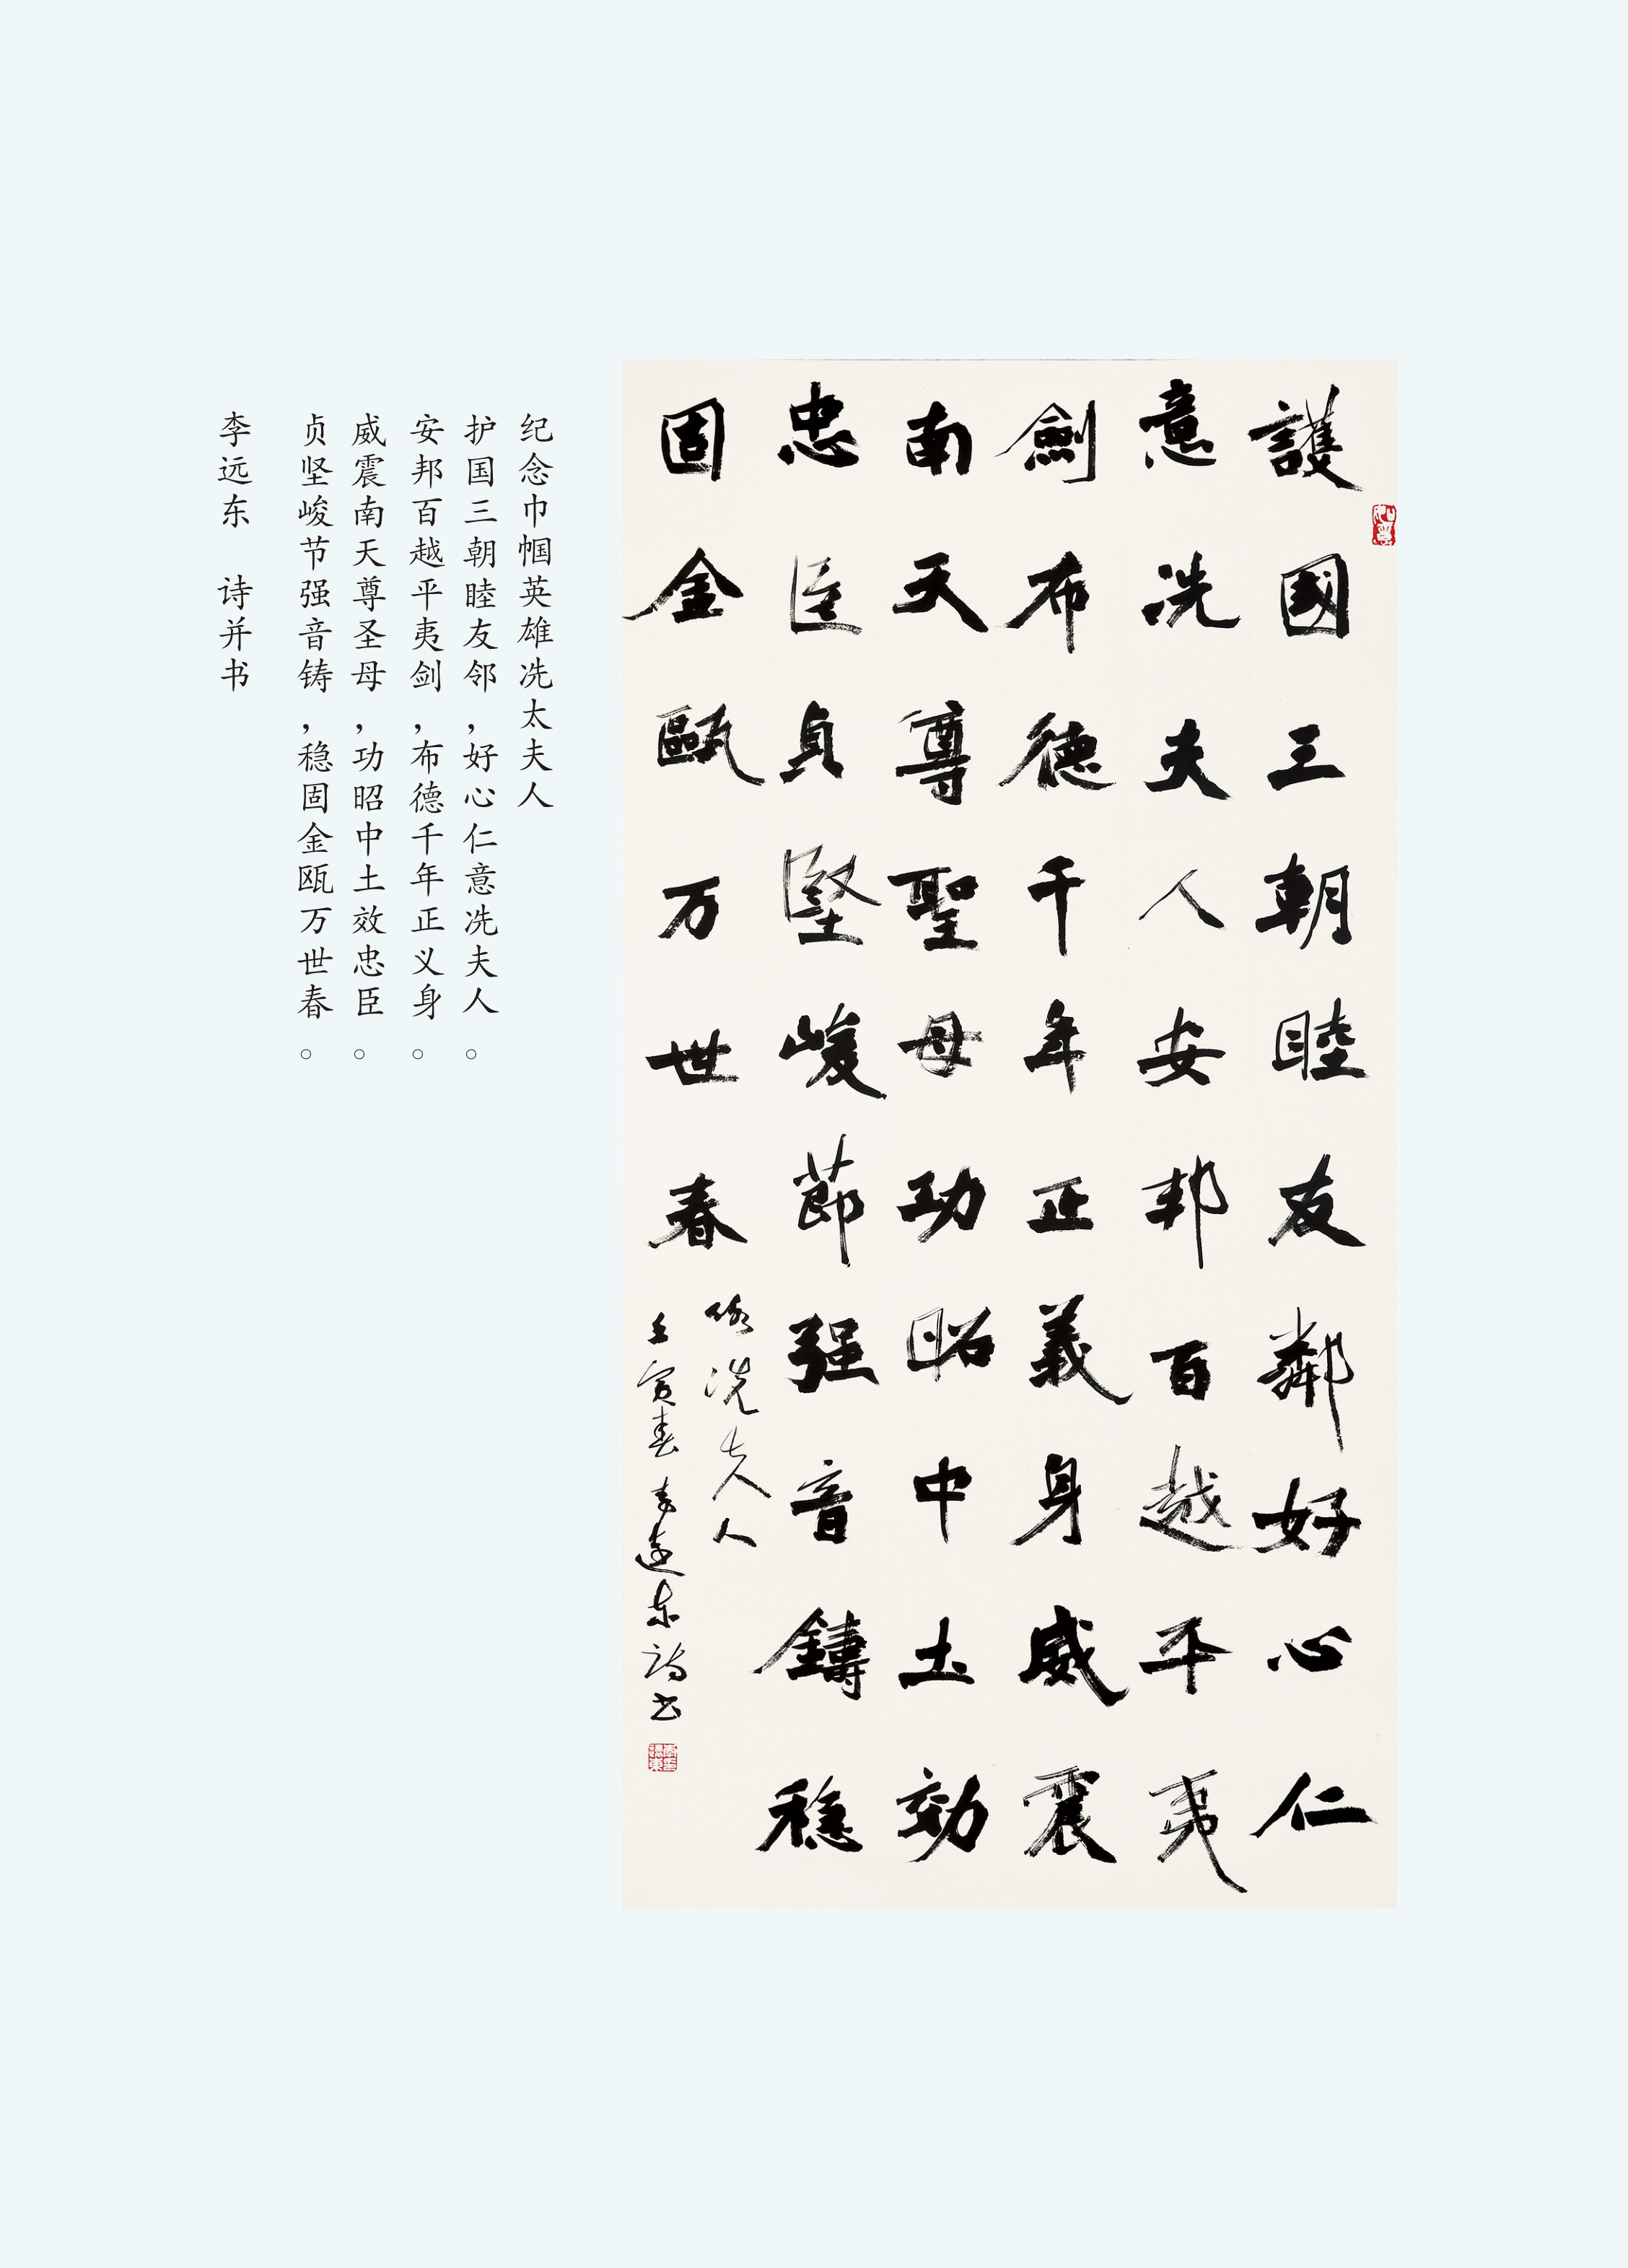 護國三朝睦友鄰好心仁
意冼夫人安邦百越平夷
劍布德千年正義身威震
南天尊聖母功昭中土効
忠臣貞堅峻節强音鑄穩
固金甌万世春
冼夫人
壬寅春李遠东詩书
纪念巾帼英雄冼太夫人
护国三朝睦友邻,好心仁意冼夫人。
安邦百越平夷剑,布德千年正义身。
威震南天尊圣母,功昭中土效忠臣。
贞坚峻节强音铸,稳固金瓯万世春。
李远东 诗并书